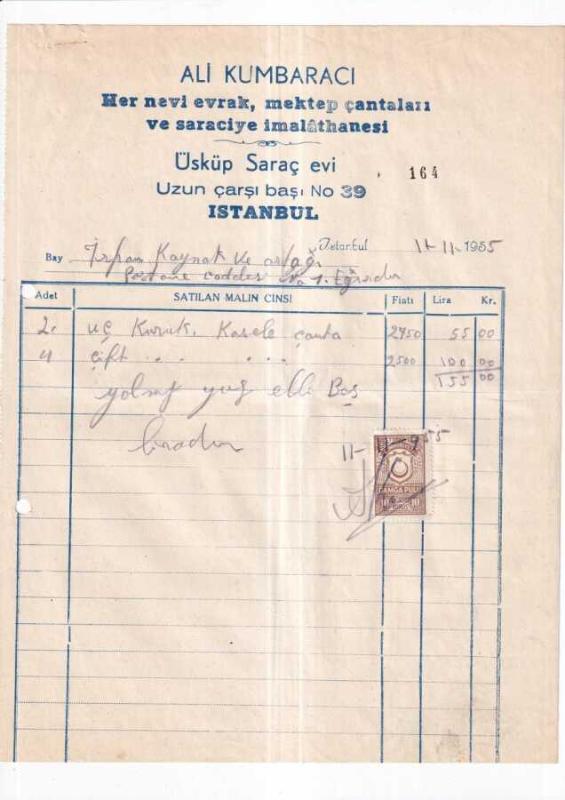 ALİ KUMBARACI
Her nevi evrak, mektep çantaları
ve saraciye imalâthanesi
Üsküp Saraç evi
164
Uzun çarşı başı No 39
ISTANBUL
İstanbul 11-11-1955
Bay İrfan Kaynak ve ortağı
Postane caddesi No 1. Eğirdir
Adet SATILAN MALIN CINSI Fiatı Lira Kr.
2. üç Kasele çanta 55 00
4 çift " " " " 2500 100 00
155 00
yalnız yüz elli Beş
liradır
11-11-955
DAMGA PULU
10 10